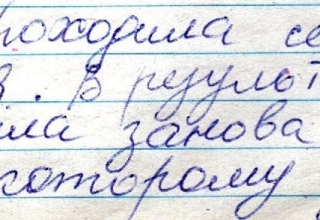 роходила се
в. В результ
ила занова
которому